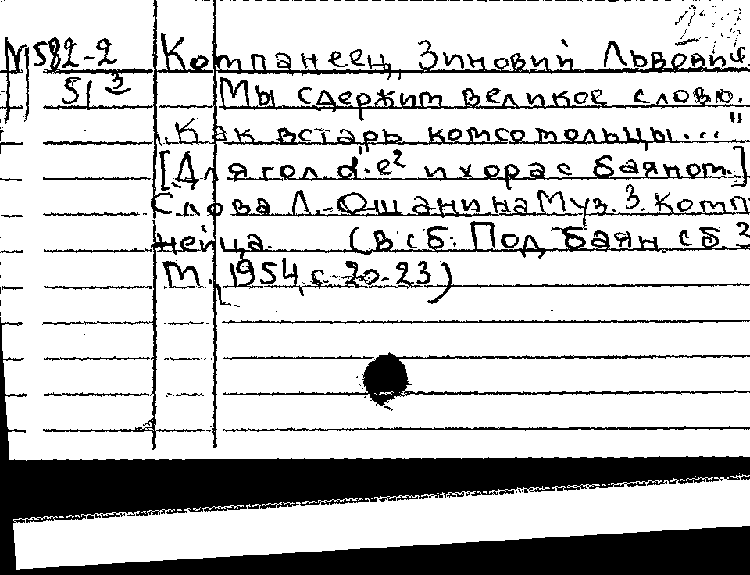 М 582-2 Компанеец, Зиновий Львович
51³ Мы сдержим великое слово.
„Как встарь комсомольцы..."
[Для гол. d'-e² и хора с баяном.]
Слова Л. Ошанина Муз. З. Комп
нейца. (В сб: Под баян сб 3
М., 1954, с. 20-23)